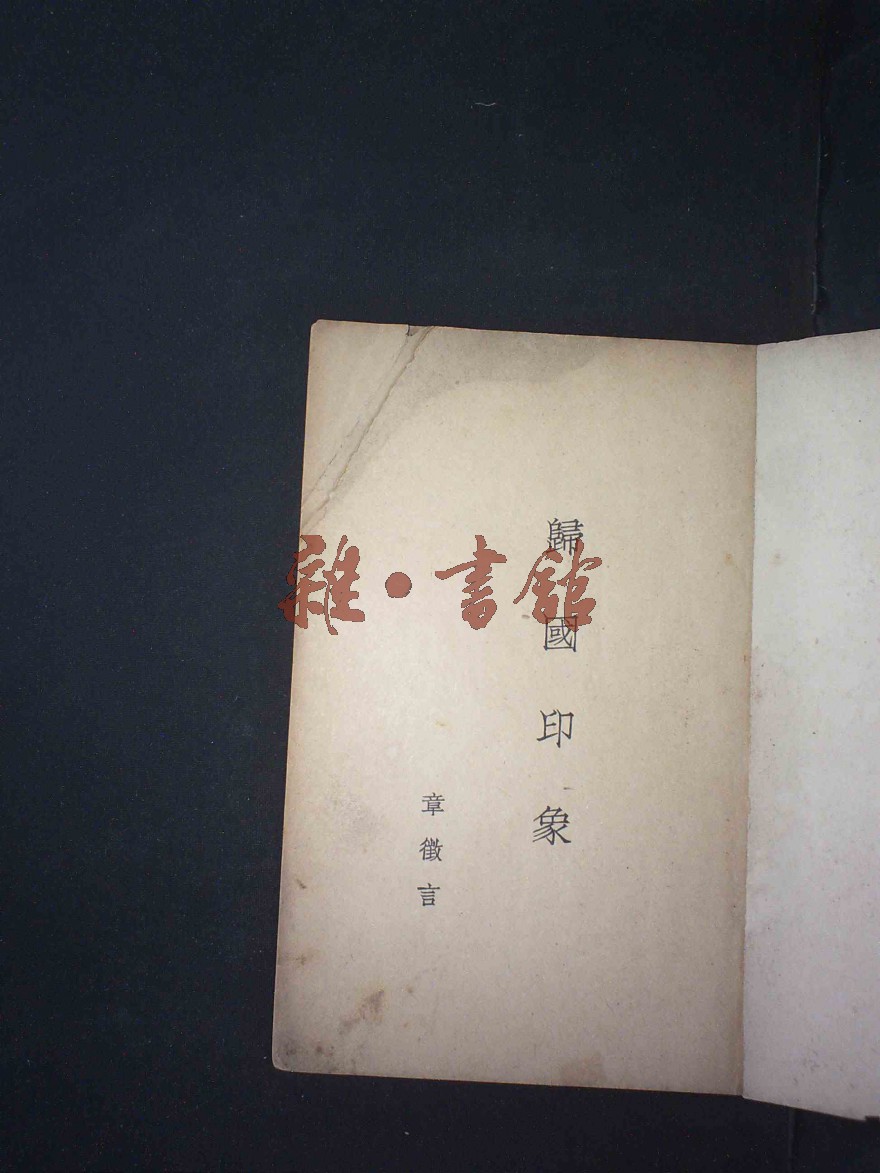 歸國印象
章徵言
雜·書館